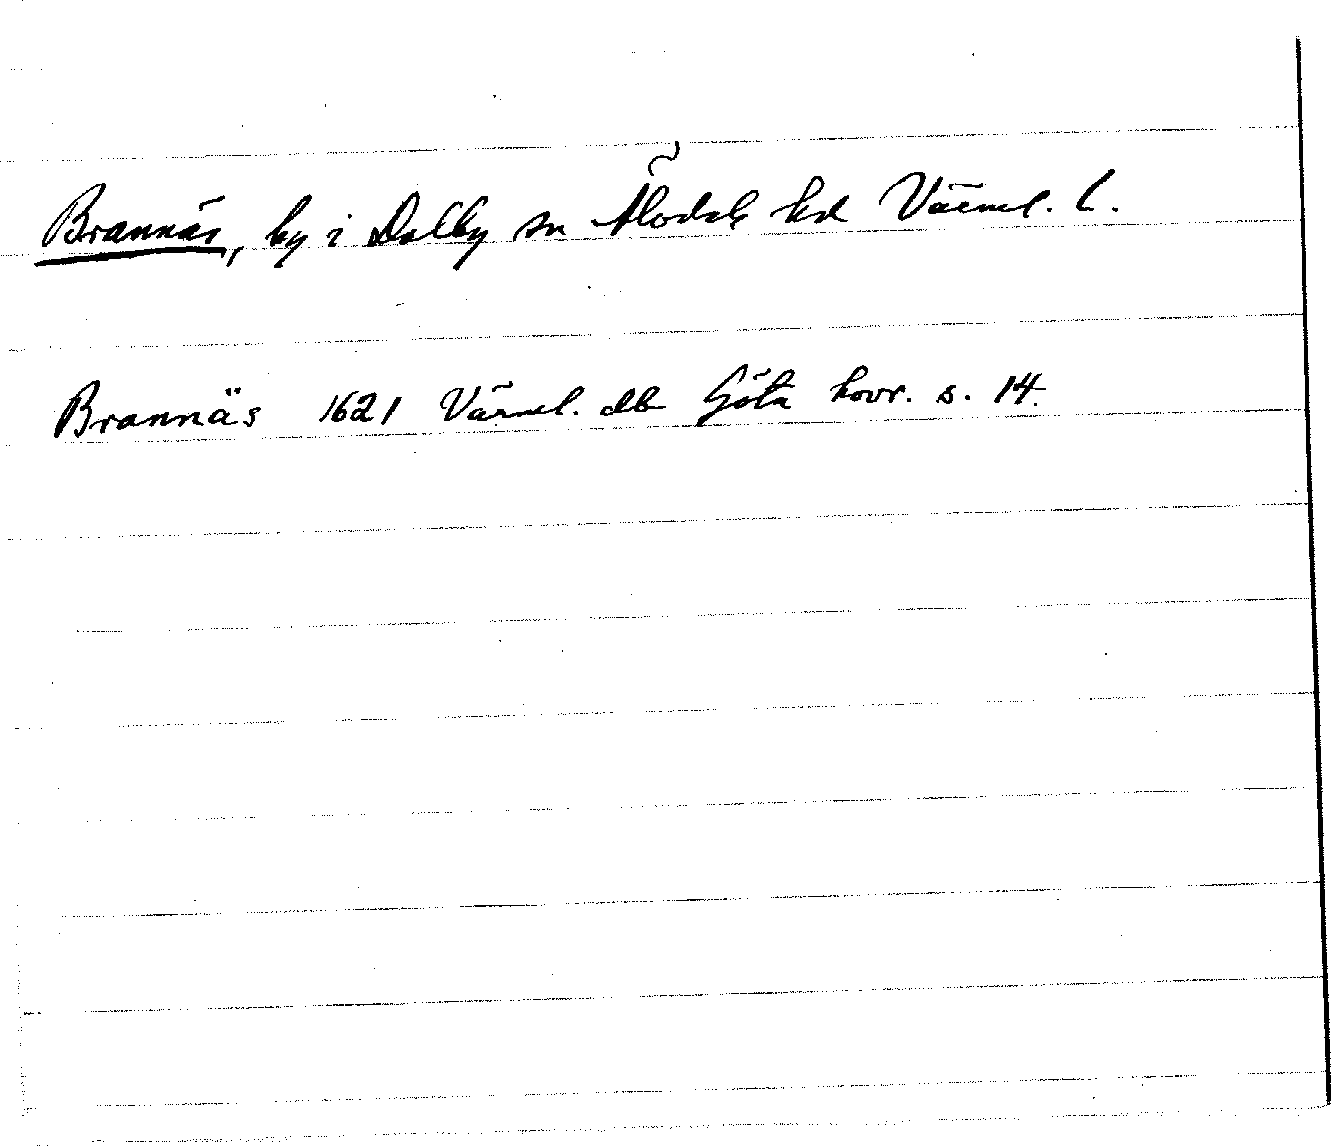 Brannäs, by i Dalby sn Älvdals hd Värml. l.
Brannäs 1621 Värml. db Göta hovr. s. 14.